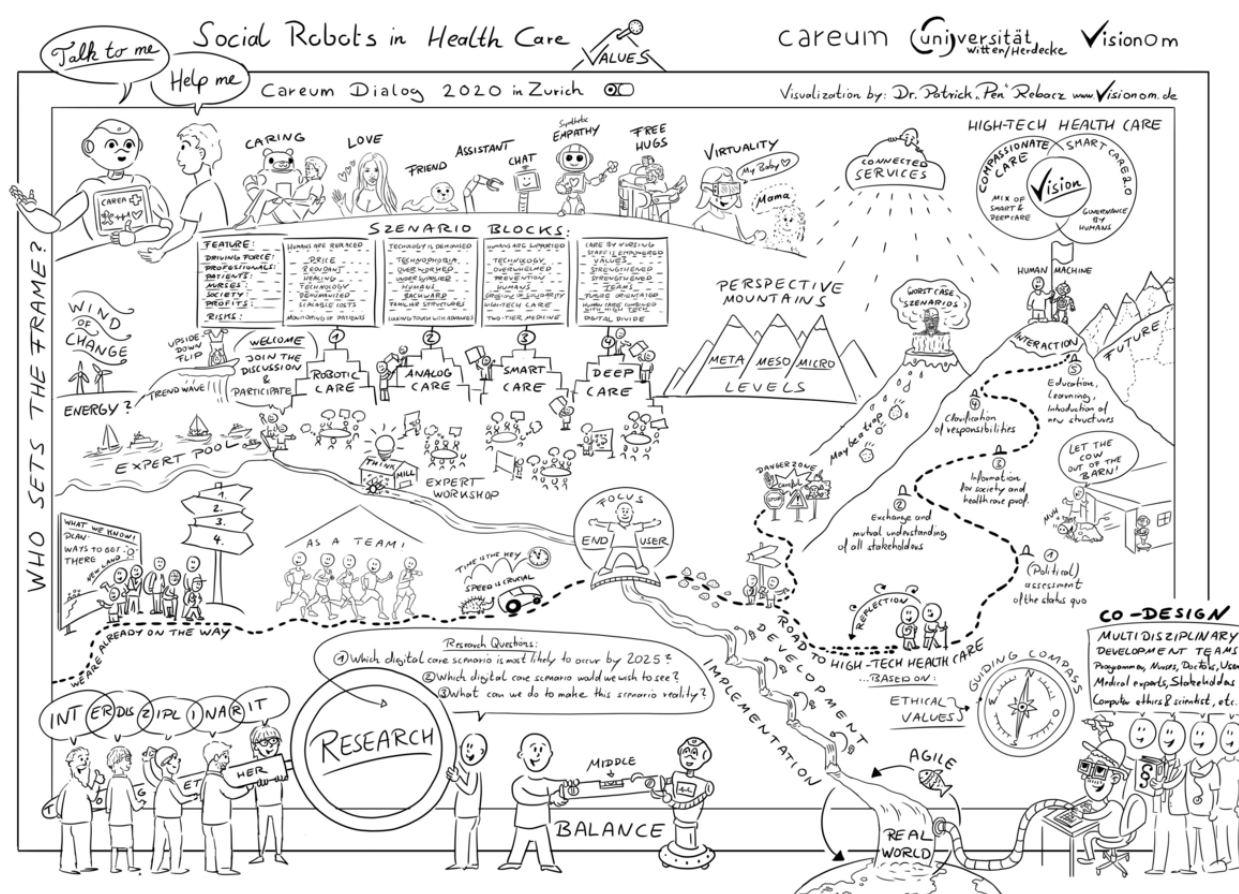 Talk to me
Help me
Social Robots in Health Care
VALUES
careum
universität
witten/Herdecke
Visionom
Careum Dialog 2020 in Zurich
Visualization by: Dr. Patrick "Pen" Rebacz www.Visionom.de
WHO SETS THE FRAME?
CAREA
CARING
LOVE
FRIEND
ASSISTANT
CHAT
Synthetic
EMPATHY
FREE
HUGS
VIRTUALITY
My Baby
Mama
CONNECTED
SERVICES
HIGH-TECH HEALTH CARE
COMPASSIONATE
CARE
SMART CARE 2.0
Vision
MIX OF
SMART &
DEEP CARE
GOVERNANCE
BY
HUMANS
SZENARIO BLOCKS:
FEATURE:
DRIVING FORCE:
PROFESSIONALS:
PATIENTS:
NURSES:
SOCIETY:
PROFITS:
RISKS:
HUMANS ARE REPLACED
PRICE
REDUDANT
HEALING
TECHNOLOGY
DEHUMANIZED
SCALABLE COSTS
MONITORING OF PATIENTS
TECHNOLOGY IS DEMONISED
TECHNOPHOBIA
OVERWORKED
UNDERSUPPLIED
HUMANS
BACKWARD
FAMILIAR STRUCTURES
LOSING TOUCH WITH ADVANCES
HUMANS ARE SUPPORTED
TECHNOLOGY
OVERWHELMED
PREVENTION
HUMANS
EROSION OF SOLIDARITY
HIGH-TECH CARE
TWO-TIER MEDICINE
CARE BY NURSING
STAFF IS EMPOWERED
VALUES
STRENGTHENED
STRENGTHENED
TEAMS
FUTURE ORIENTATED
HUMAN CARE COMBINED
WITH HIGH TECH
DIGITAL DIVIDE
1
ROBOTIC
CARE
2
ANALOG
CARE
3
SMART
CARE
4
DEEP
CARE
WIND
OF
CHANGE
ENERGY?
UPSIDE
DOWN
FLIP
TRENDWAVE
WELCOME
JOIN THE
DISCUSSION
&
PARTICIPATE
EXPERT POOL
THINK
MILL
EXPERT
WORKSHOP
PERSPECTIVE
MOUNTAINS
META
MESO
MICRO
LEVELS
WORST CASE
SZENARIOS
HUMAN
MACHINE
INTERACTION
FUTURE
May be a trap
DANGER ZONE
STOP
CAREFUL
5
Education,
Learning,
Introduction of
new structures
4
Clarification
of responsibilities
3
Information
for society and
health care prof.
2
Exchange and
mutual understanding
of all stakeholders
1
(Political)
assessment
of the status quo
LET THE
COW
OUT OF THE
BARN!
MUH
WHAT WE KNOW!
PLAN:
WAYS TO GET
THERE
NEW LAND
1.
2.
3.
4.
AS A TEAM!
TIME IS THE KEY
SPEED IS CRUCIAL
FOCUS
END
USER
WE ARE ALREADY ON THE WAY
REFLECTION
ROAD TO
HIGH-TECH HEALTH CARE
...BASED ON:
ETHICAL
VALUES
GUIDING COMPASS
CO-DESIGN
MULTIDISZIPLINARY
DEVELOPMENT TEAMS
Programmer, Nurses, Doctors, User
Medical experts, Stakeholdes
Computer ethics & scientist, etc.
Research Questions:
1 Which digital care scenario is most likely to occur by 2025?
2 Which digital care scenario would we wish to see?
3 What can we do to make this scenario reality?
INTERDISZIPLINARIT
T
G
ET
HER
RESEARCH
MIDDLE
BALANCE
DEVELOPMENT
IMPLEMENTATION
AGILE
REAL
WORLD